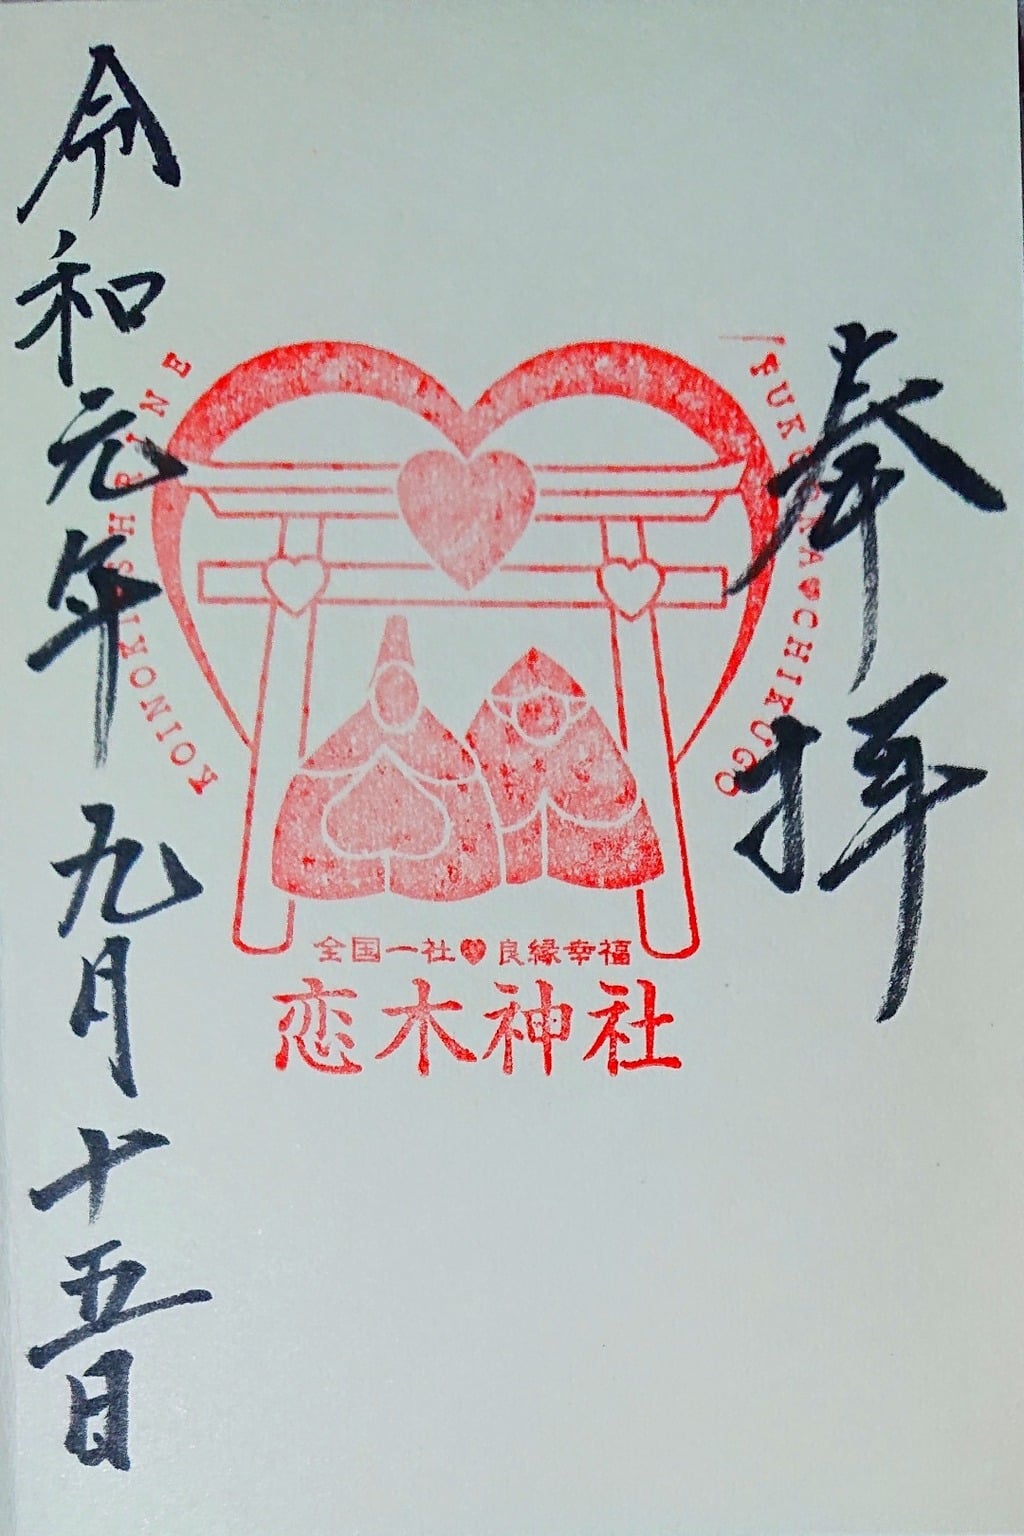 奉拝
KOINOKI SHRINE
FUKUOKA♥CHIKUGO
全国一社♥良縁幸福
恋木神社
令和元年九月十五日